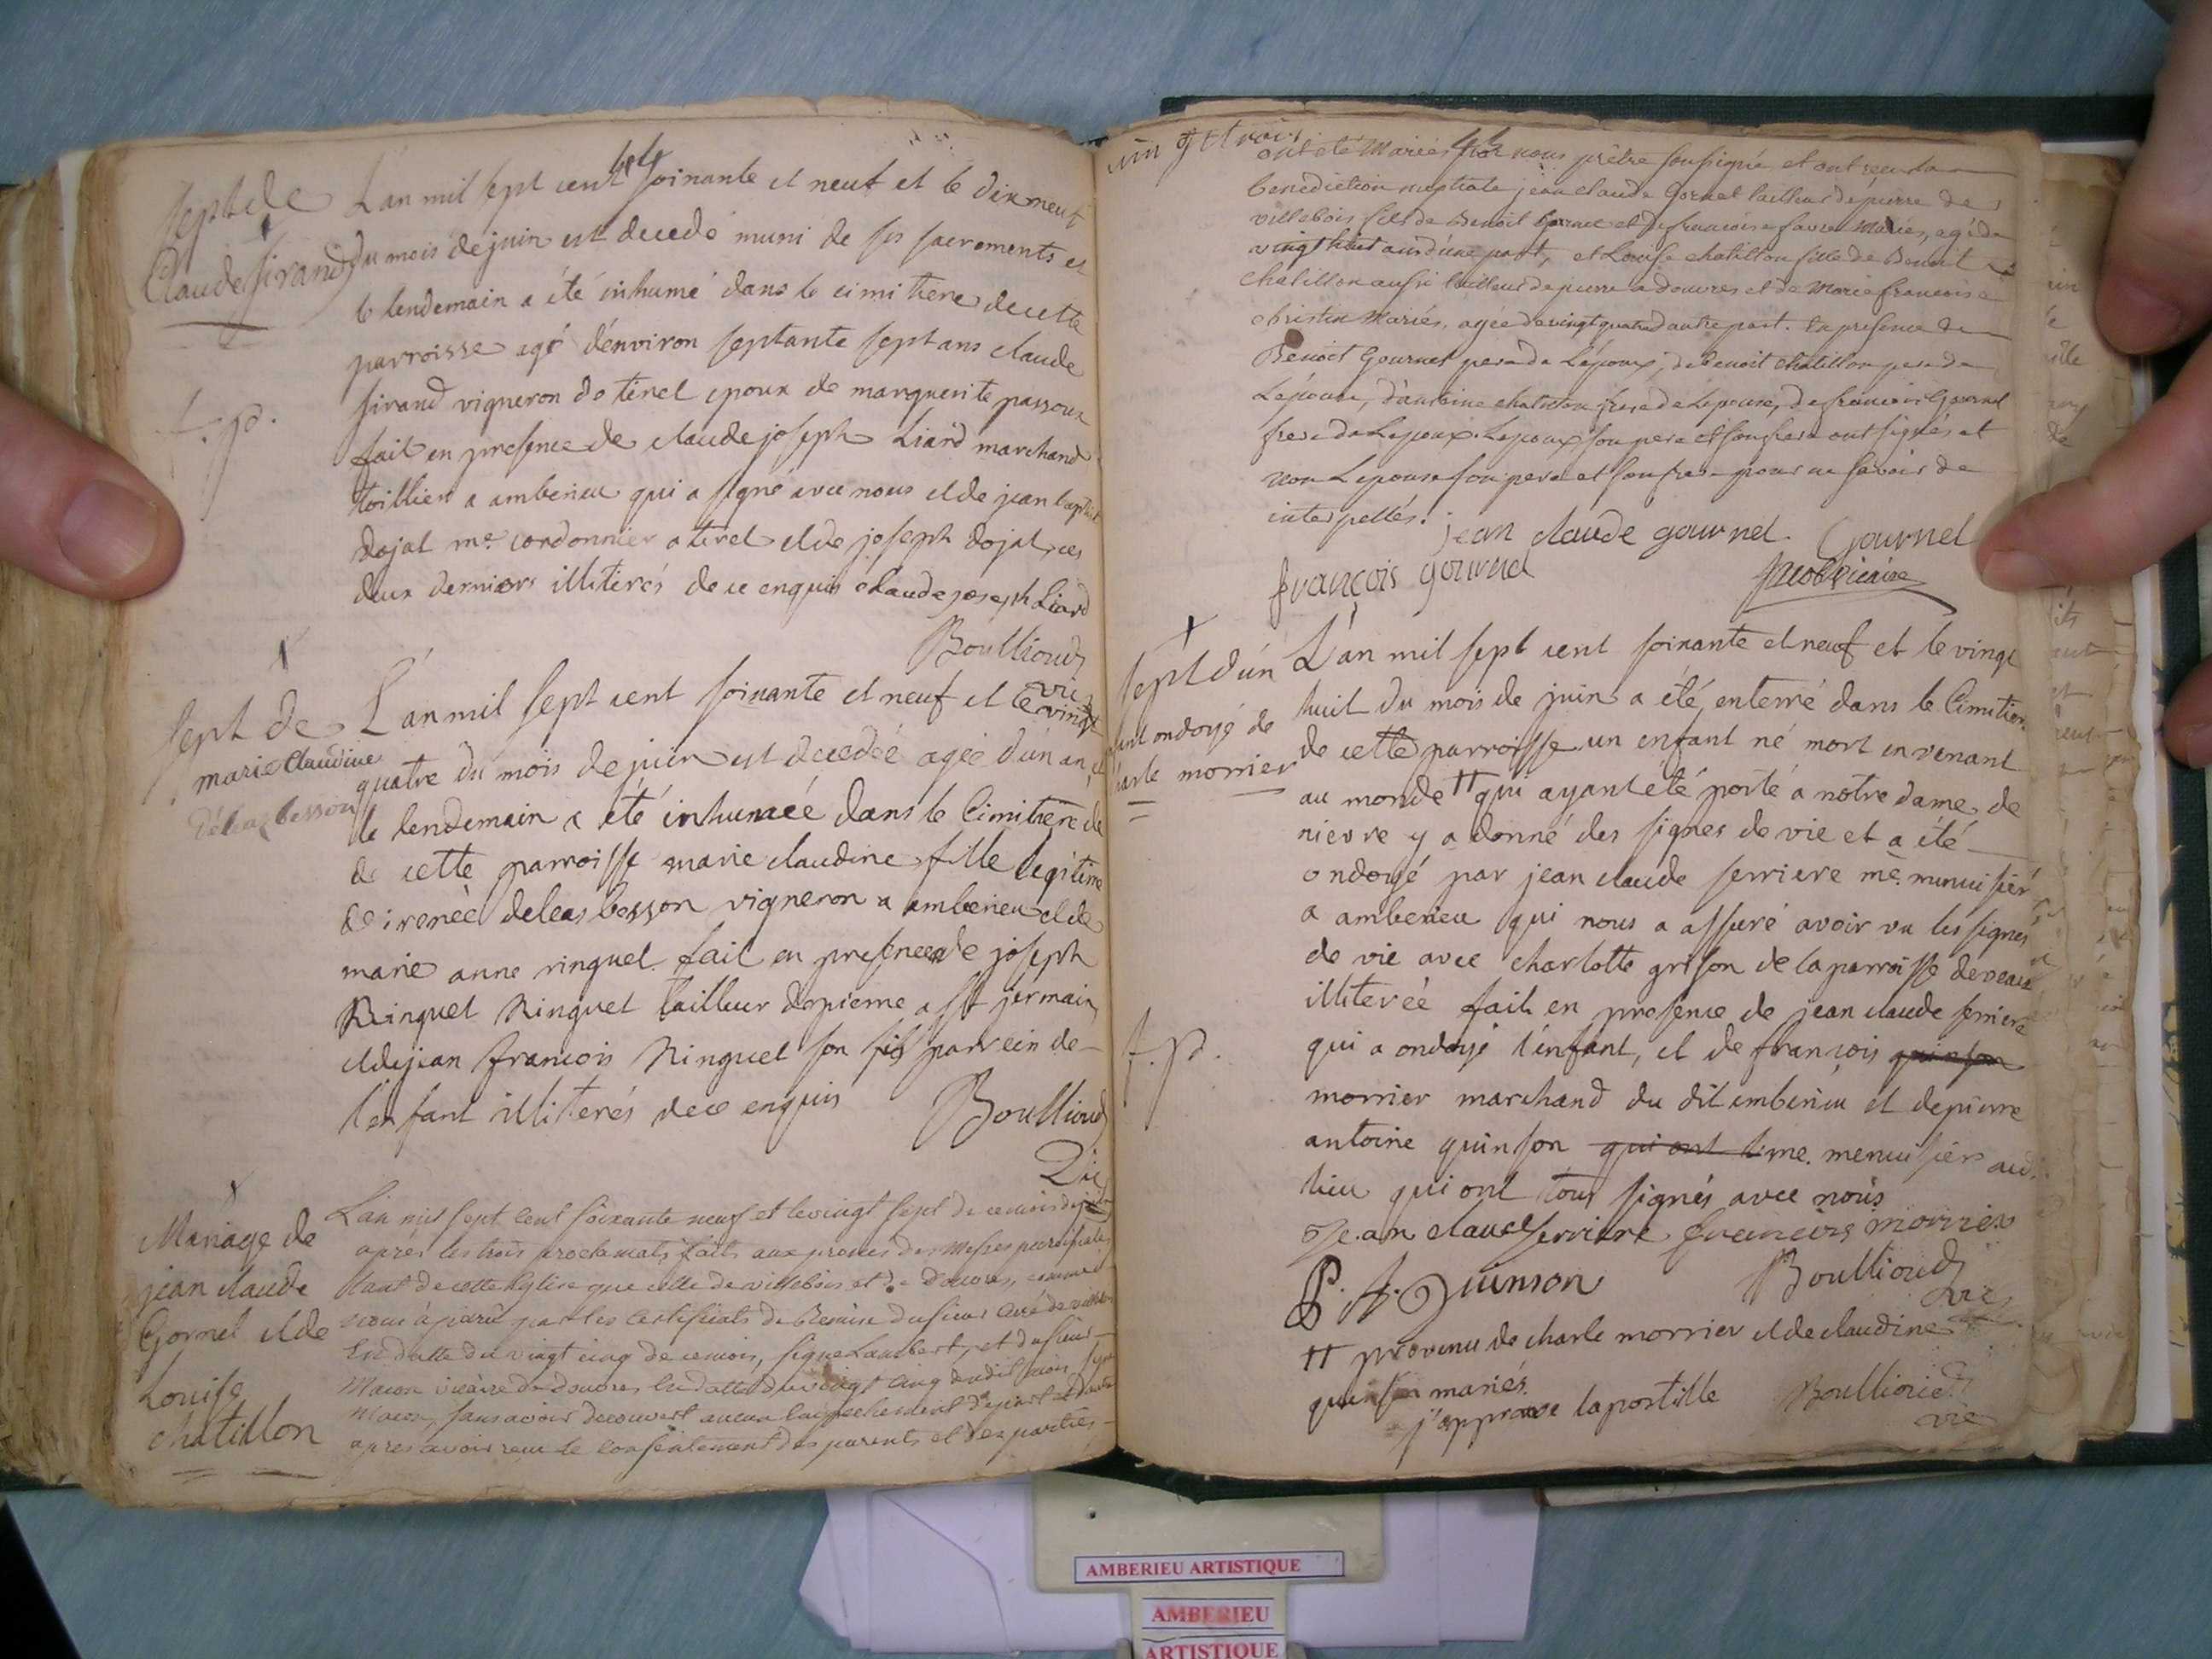 Sept de
Claude Sirand
L'an mil sept cent soixante et neuf et le dix neuf
du mois de juin est decedé muni de ses sacrements et
le lendemain a été inhumé dans le cimitiere de cette
parroisse agé d'environ septante sept ans claude
sirand vigneron de tiret epoux de marguerite passoux
fait en presence de claude joseph Liard marchand
a amberieu qui a signé avec nous et de jean baptiste
dojat me. cordonnier a tiret et de joseph dojat, ces
deux derniers illiterés de ce enquis Claude joseph Liard
Boullioud
vic
Sept de
marie claudine
deleaz besson
L'an mil sept cent soixante et neuf et le vingt
quatre du mois de juin est decedeé ageé d'un an, et
le lendemain a été inhumeé dans le Cimitiere de
de cette parroisse marie claudine fille legitime
de ireneé deleas besson vigneron a amberieu et de
marie anne ringuet. fait en presence de joseph
Ringuet Ringuet tailleur de pierre a st jermain
et de jean françois Ringuet son fils parrein de
l'enfant illiterés de ce enquis Boullioud
Vic
Mariage de
jean claude
Gornet et de
Louise
chatillon
L'an mil sept cent soixante neuf et le vingt sept de ce mois de juin
après les trois proclamats faits aux prones des Messes paroissiales
tant de cette Eglise que celle de villebois et de douvres, comme
nous à paru par les certificats de Remise du sieur curé de
En datte du vingt cinq de ce mois, signé Lambert, et du sieur
Macon vicaire de douvres En datte du vingt cinq dudit mois, signé
Macon, sans avoir decouvert aucun Empechement de part et d'autre
apres avoir reçu le consentement des parents et des parties
vingt trois
ont été Mariés par nous prêtre soussigné et ont reçu la
benediction nuptiale jean claude Gornet tailleur de pierre de
villebois fils de Benoit Gornet et de francoise favre Mariés, agé de
vingt huit ans d'une part, et Louise chatillon fille de Benoit
chatillon aussi tailleur de pierre a douvres et de Marie francoise
christin Mariés, agée de vingt quatre d'autre part. En presence de
Benoit Gournet pere de L'époux, de benoit chatillon pere de
L'épouse, d'antoine chatillon frere de L'epouse, de francois Gournet
frere de L'epoux. L'epoux son pere et son frere ont signés et
non L'epouse son pere et son frere pour ne savoir de
interpellés.
jean claude gournet. Gournet
françois gournet
Sept d'un
enfant ondoyé de
charle morrier
L'an mil sept cent soixante et neuf et le vingt
huit du mois de juin a été enterré dans le Cimitiere
de cette parroisse un enfant né mort en venant
au monde †† qui ayant été porté a notre dame de
nievre y a donné des signes de vie et a été
ondoyé par jean claude serriere me. menuisiér
a amberieu qui nous a assuré avoir vu les signes
de vie avec charlotte grison de la parroisse de vaux
illitereé fait en presence de jean claude serriere
qui a ondoyé l'enfant, et de françois quinson
morrier marchand du dit amberieu et de pierre
antoine quinson qui ont me. menuisiers aud.
lieu qui ont tous signés avec nous
Jean claude serriere françois morrier
P. A. Quinson Boullioud
vic
†† provenu de charle morrier et de claudine
quinson mariés.
j'approuve l'apostille Boullioud
vic
AMBERIEU ARTISTIQUE
AMBERIEU
ARTISTIQUE